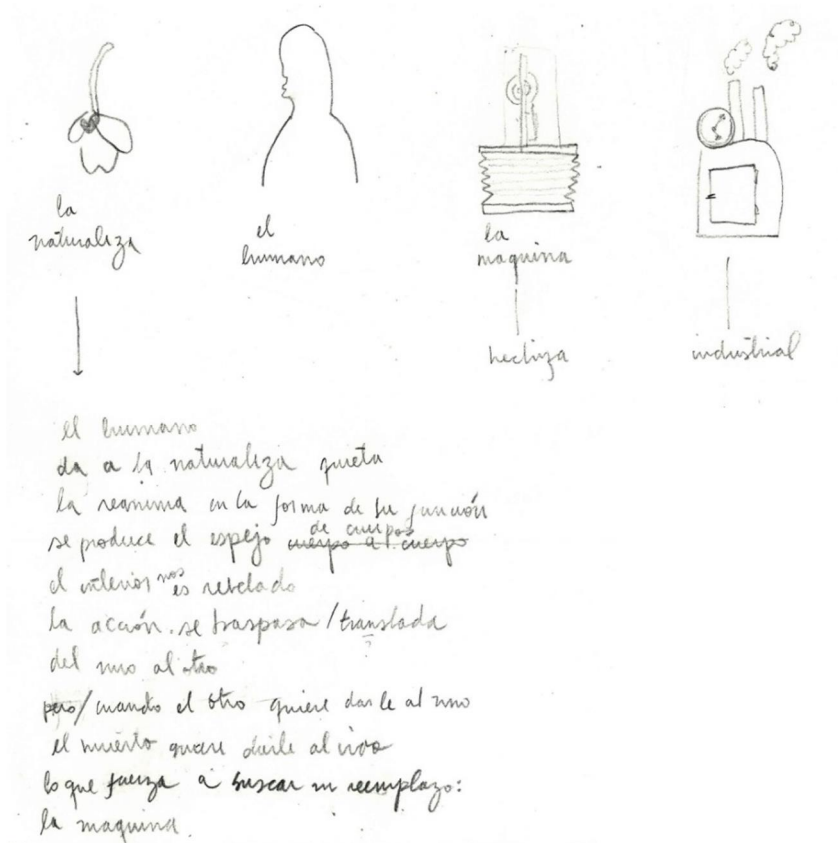 la
naturaleza
el
humano
la
maquina
hechiza
industrial
el humano
da a la naturaleza quieta
la reanima en la forma de su función
se produce el espejo de cuerpos cuerpo a cuerpo
el interior nos es revelado
la acción se traspasa/translada
del uno al otro
pero/cuando el otro quiere darle al uno
el muerto quiere darle al vivo
lo que fuerza a buscar su reemplazo:
la maquina